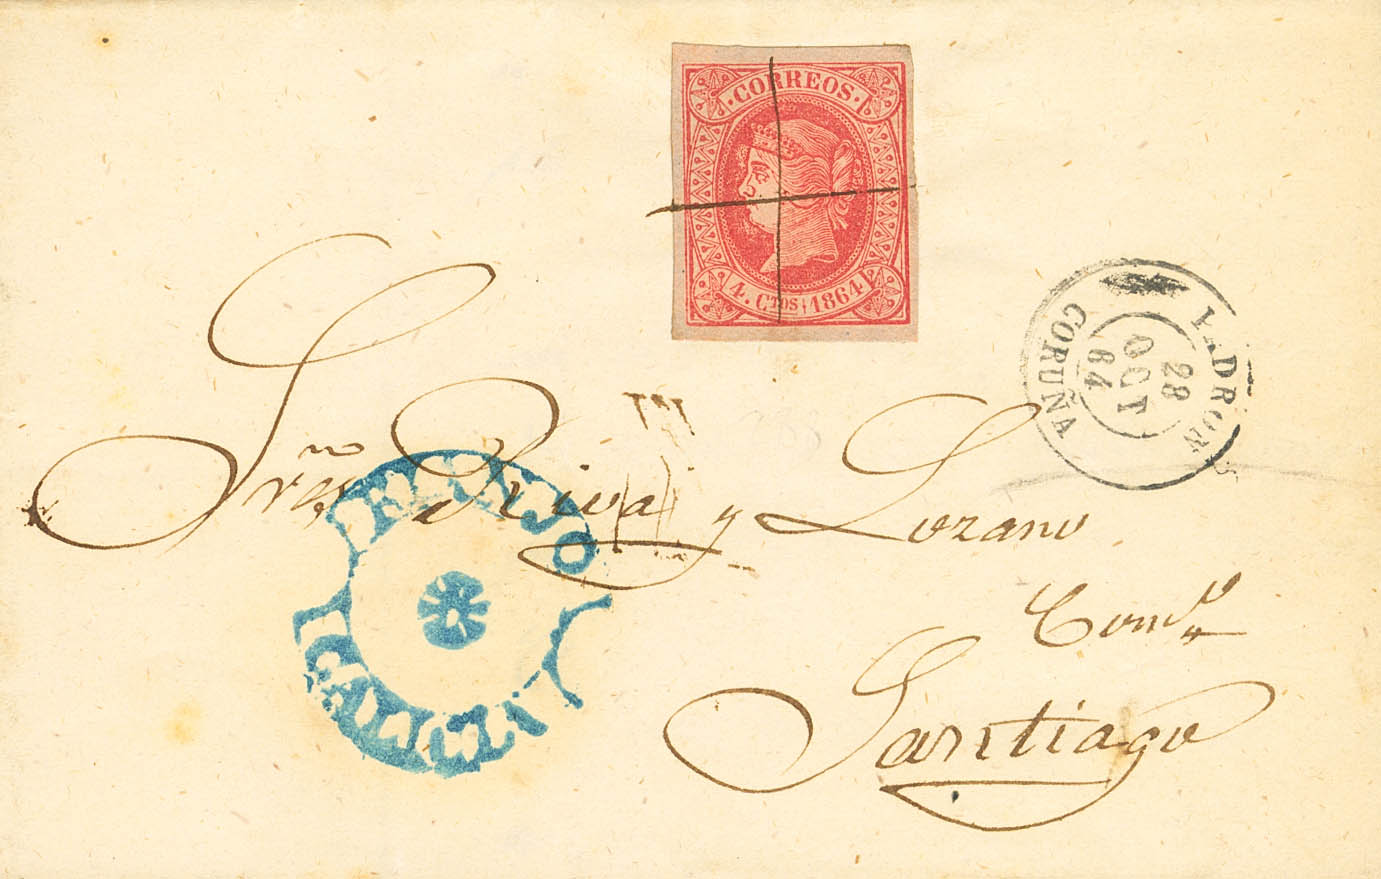 ·CORREOS·
4. CTOS 1864
PADRON
28
OCT
64
CORUÑA
Riva y Lozano
Santiago
GALICIA